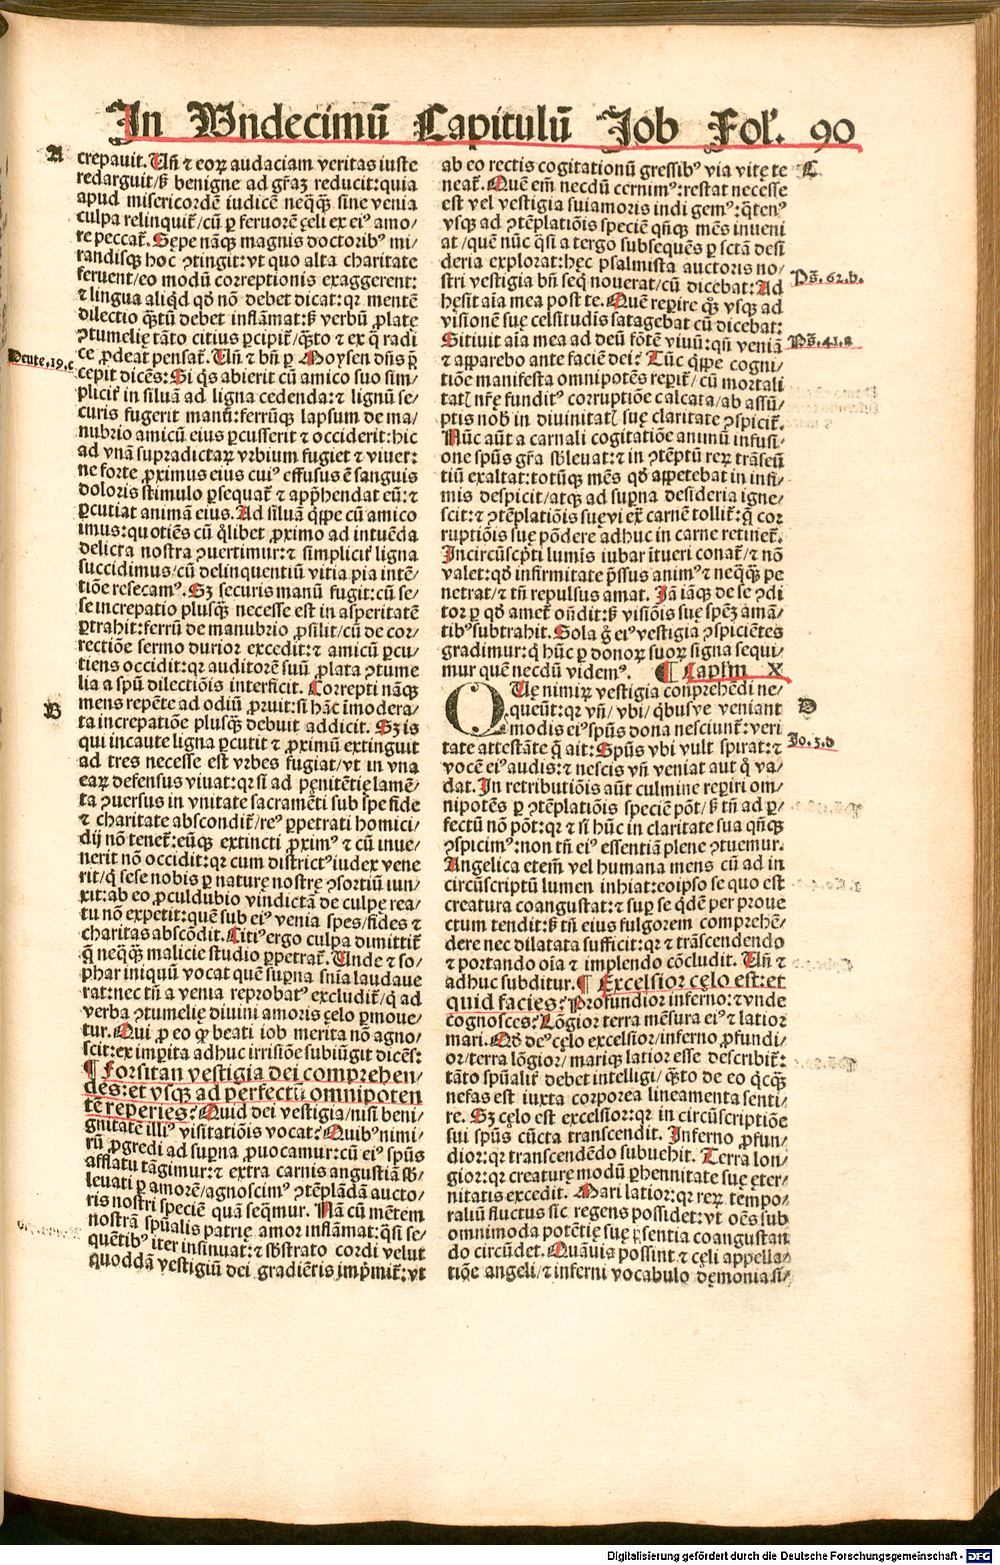 In Undecimū Capitulū Job Fol. 90
A
crepauit. Un̄ ⁊ eoꝝ audaciam veritas iuste
redarguit/ẞ benigne ad gr̄aꝫ reducit: quia
apud misericordē iudicē neqꝫ̄qꝫ sine venia
culpa relinquit᷑/cū ꝑ feruorē çeli ex ei⁹ amo/
re peccat᷑. Sępe nāqꝫ magnis doctorib⁹ mi/
randisqꝫ hoc ꝯtingit: vt quo alta charitate
feruent/eo modū correptionis exaggerent:
⁊ lingua aliq̇d qḋ nō debet dicat: qꝛ mentē
dilectio qꝫ̄tū debet inflāmat: ẞ verbū ꝓlate
ꝯtumelię tāto citius ꝑcipit᷑/qꝫ̄to ⁊ ex q̇ radi
ce ꝓdeat pensat᷑. Un̄ ⁊ bn̄ ꝑ Moysen dn̄s p̄
Deute.19.c
cepit dicēs: Si q̇s abierit cū amico suo sim/
plicit᷑ in siluā ad ligna cedenda: ⁊ lignū se/
curis fugerit manu: ferrūqꝫ lapsum de ma/
nubrio amicū eius ꝑcusserit ⁊ occiderit: hic
ad vnā supradictaꝝ vrbium fugiet ⁊ viuet:
ne forte ꝓximus eius cui⁹ effusus ē sanguis
doloris stimulo ꝑsequat᷑ ⁊ app̄hendat eū: ⁊
ꝑcutiat animā eius. Ad siluā qꝫ̄pe cū amico
imus: quotiēs cū q̇libet ꝓximo ad intuēda
delicta nostra ꝯuertimur: ⁊ simplicit᷑ ligna
succidimus/cū delinquentiū vitia pia intē/
tiōe resecam⁹. Sꝫ securis manū fugit: cū se/
se increpatio plusqꝫ̄ necesse est in asperitatē
ꝑtrahit: ferrū de manubrio ꝓsilit/cū de cor/
rectiōe sermo durior excedit: ⁊ amicū ꝑcu/
tiens occidit: qꝛ auditorē suū ꝓlata ꝯtume
lia a spū dilectiōis interficit. Correpti nāqꝫ
B
mens repēte ad odiū ꝓruit: si hāc īmodera/
ta increpatiōe plusqꝫ̄ debuit addicit. Sꝫ is
qui incaute ligna ꝑcutit ⁊ ꝓximū extinguit
ad tres necesse est vrbes fugiat/vt in vna
eaꝝ defensus viuat: qꝛ si ad pęnitētię lamē/
ta ꝯuersus in vnitate sacramēti sub spe fide
⁊ charitate abscondit᷑/re⁹ ꝑpetrati homici/
dij nō tenet᷑: eūqꝫ extincti ꝓxim⁹ ⁊ cū inue/
nerit nō occidit: qꝛ cum district⁹ iudex vene
rit/q̇ sese nobis ꝑ naturę nostrę ꝯsortiū iun/
xit: ab eo ꝓculdubio vindictā de culpę rea/
tu nō expetit: quē sub ei⁹ venia spes/fides ⁊
charitas abscōdit. Citi⁹ ergo culpa dimittit᷑
q̄ neqꝫ̄qꝫ malicię studio ꝑpetrat᷑. Unde ⁊ so/
phar iniquū vocat quē suꝑna sn̄ia laudaue
rat: nec tn̄ a venia reprobat⁹ excludit᷑/q̇ ad
verba ꝯtumelię diuini amoris çelo ꝑmoue/
tur. Qui ꝑ eo ꝙ beati iob merita nō agno/
scit: ex imꝑita adhuc irrisiōe subiūgit dicēs:
¶ Forsitan vestigia dei comprehen/
des: et vsqꝫ ad perfectū omnipoten
tē reperies? Quid dei vestigia/nisi beni/
gnitatē illi⁹ visitatiōis vocat? Quib⁹ nimi/
rū ꝓgredi ad suꝑna ꝓuocamur: cū ei⁹ spūs
afflatu tāgimur: ⁊ extra carnis angustiā sḃ/
leuati ꝑ amorē/agnoscim⁹ ꝯtēplādā aucto/
ris nostri speciē quā seq̄mur. Nā cū mētem
nostrā spūalis patrię amor inflāmat: q̄si se/
quētib⁹ iter insinuat: ⁊ sḃstrato cordi velut
quoddā vestigiū dei gradiētis imp̄mit᷑: vt
ab eo rectis cogitationū gressib⁹ via vitę te
C
neat᷑. Quē em̄ necdū cernim⁹: restat necesse
est vel vestigia sui amoris indigem⁹: q̄ten⁹
vsqꝫ ad ꝯtēplatiōis speciē qn̄qꝫ mēs inueni
at/quē nūc q̄si a tergo subsequēs ꝑ sctā desi
deria explorat: hęc psalmista auctoris no/
Ps̄.62.b.
stri vestigia bn̄ seq̇ nouerat/cū dicebat: Ad
hęsit aīa mea post te. Quē reꝑire qꝫ̄ vsqꝫ ad
visionē suę celsitudis satagebat cū dicebat:
Ps̄.41.a
Sitiuit aīa mea ad deū fōtē viuū: qn̄ veniā
⁊ apparebo ante faciē dei? Tūc qꝫ̄pe cogni/
tiōe manifesta omnipotēs reꝑit᷑/cū mortali
tatꝭ nr̄ę fundit⁹ corruptiōe calcata/ab assū/
ptis nob̄ in diuinitatꝭ suę claritate ꝯspicit᷑.
Nūc aūt a carnali cogitatiōe animū infusi/
one spūs gr̄a sḃleuat: ⁊ in ꝯtēptū reꝝ trāseū
tiū exaltat: totūqꝫ mēs qḋ appetebat in infi/
mis despicit/atqꝫ ad suꝑna desideria igne/
scit: ⁊ ꝯtēplatiōis suę vi ex̄ carnē tollit᷑: q̄ cor
ruptiōis suę pōdere adhuc in carne retinet᷑.
Incircūscp̄ti lumīs iubar ītueri conat᷑/⁊ nō
valet: qḋ infirmitate p̄ssus anim⁹ ⁊ neqꝫ̄qꝫ pe
netrat/⁊ tn̄ repulsus amat. Jā iāqꝫ de se ꝯdi
toꝛ ꝑ qḋ amet᷑ on̄dit: ẞ visiōis suę spēꝫ amā/
tib⁹ subtrahit. Sola g̊ ei⁹ vestigia ꝯspiciētes
gradimur: q̇ hūc ꝑ donoꝝ suoꝝ signa sequi/
mur quē necdū videm⁹. ¶ Capl̄m X
QUę nimiꝝ vestigia conprehēdi ne/
D
queūt: qꝛ vn̄/vbi/q̇busve veniant
modis ei⁹ spūs dona nesciunt᷑: veri
Jo.3.b
tate attestāte q̄ ait: Spūs vbi vult spirat: ⁊
vocē ei⁹ audis: ⁊ nescis vn̄ veniat aut q̊ va/
dat. In retributiōis aūt culmine reꝑiri om/
nipotēs ꝑ ꝯtēplatiōis speciē pōt/ẞ tn̄ ad ꝑ/
fectū nō pōt: qꝛ ⁊ si hūc in claritate sua qn̄qꝫ
ꝯspicim⁹: non tn̄ ei⁹ essentiā plene ꝯtuemur.
Angelica etem̄ vel humana mens cū ad in
circūscriptū lumen inhiat: eoipso se quo est
creatura coangustat: ⁊ suꝑ se q̇dē per proue
ctum tendit: ẞ tn̄ eius fulgorem comprehē/
dere nec dilatata sufficit: qꝛ ⁊ trāscendendo
⁊ portando oīa ⁊ implendo cōcludit. Un̄ ⁊
adhuc subditur. ¶ Excelsior cęlo est: et
quid facies? Profundior inferno: ⁊ vnde
cognosces? Lōgior terra mēsura ei⁹ ⁊ latior
mari. Qḋ de⁹ cęlo excelsior/inferno ꝓfundi/
or/terra lōgior/mariqꝫ latior esse describit᷑:
tāto spūalit᷑ debet intelligi/qꝫ̄to de eo q̇cqꝫ̄
nefas est iuxta corporea lineamenta senti/
re. Sꝫ cęlo est excelsior: qꝛ in circūscriptiōe
sui spūs cūcta transcendit. Inferno ꝓfun/
dior: qꝛ transcendēdo subuehit. Terra lon/
gior: qꝛ creaturę modū ꝑhennitate suę ęter/
nitatis excedit. Mari latior: qꝛ reꝝ tempo/
raliū fluctus sic regens possidet: vt oēs sub
omnimoda potētię suę p̄sentia coangustan
do circūdet. Quāuis possint ⁊ cęli appella/
tiōe angeli/⁊ inferni vocabulo dęmonia si/
Digitalisierung gefördert durch die Deutsche Forschungsgemeinschaft - DFG